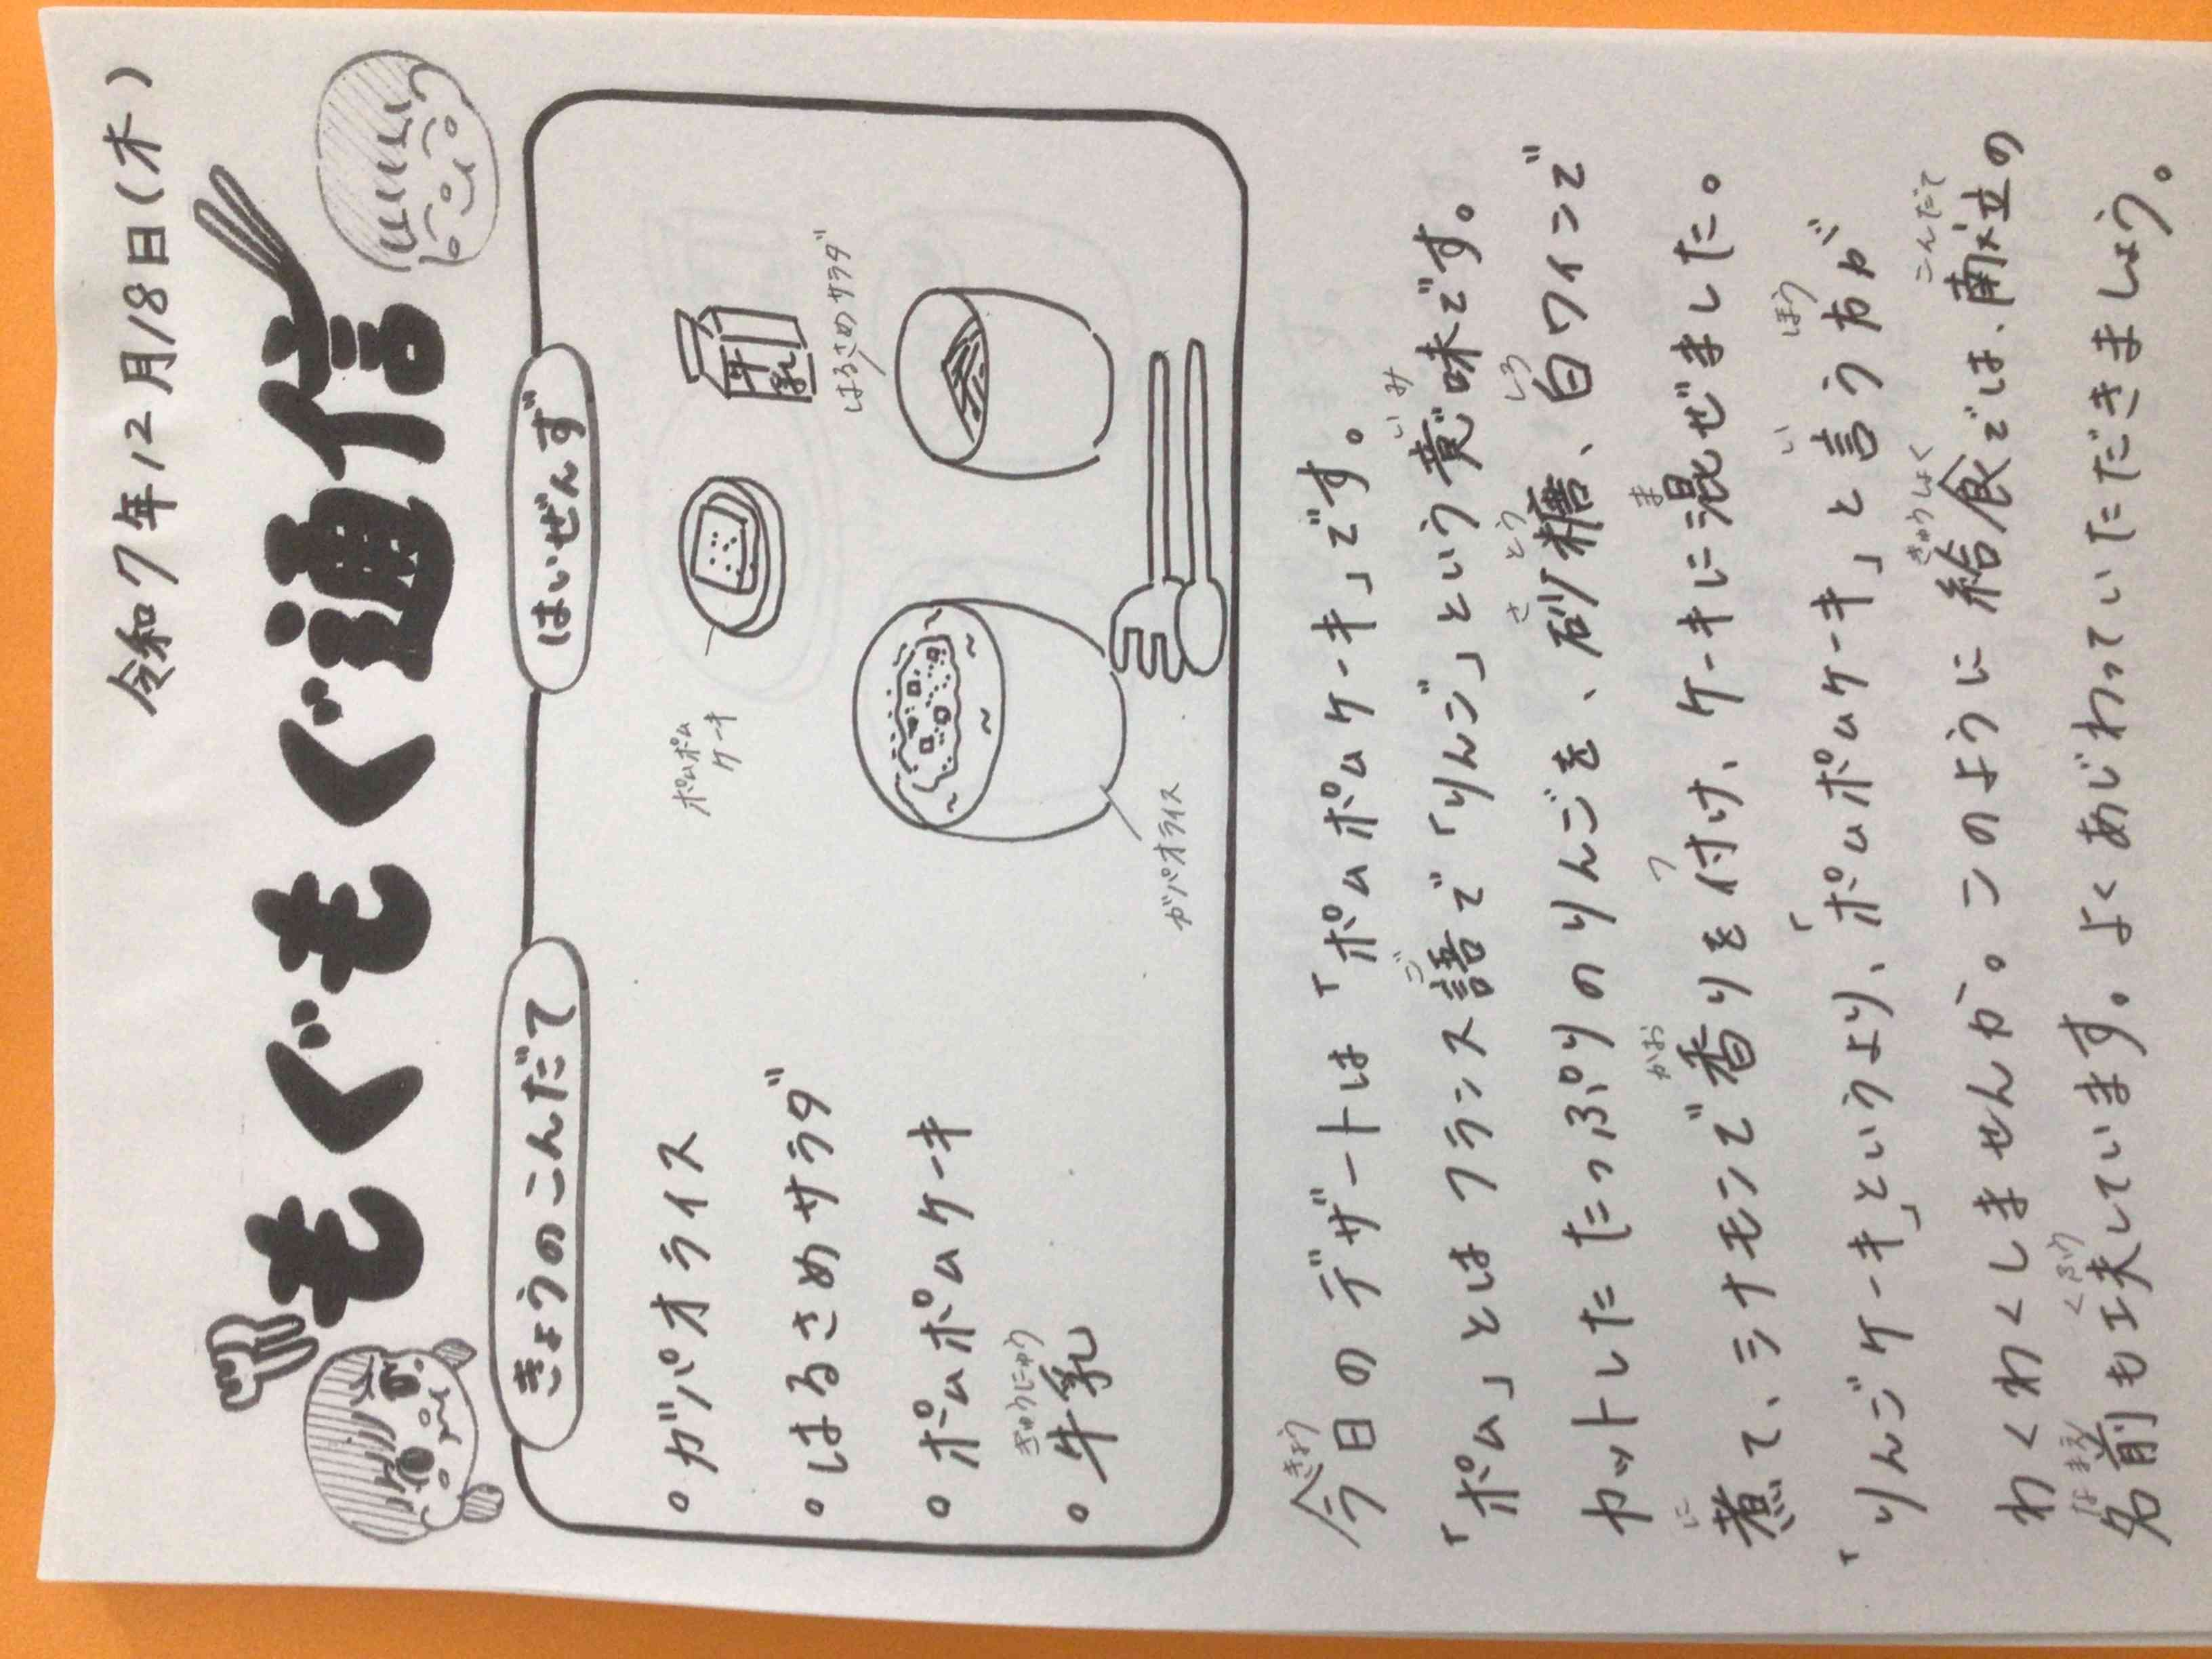 令和7年12月18日(木)
もぐもぐ通信
きょうのこんだて
はいぜんず
・ガパオライス
・はるさめサラダ
・ポムポムケーキ
ぎゅうにゅう
・牛乳
ポムポム
ケーキ
牛乳
はるさめサラダ
ガパオライス
きょう
今日のデザートは「ポムポムケーキ」です。
ご いみ
「ポム」とはフランス語で「りんご」という意味です。
さとう しろ
カットしたたっぷりのりんごを、砂糖、白ワインで
に かお つ ま
煮て、シナモンで香りを付け、ケーキに混ぜました。
い ほう
「りんごケーキ」というより、「ポムポムケーキ」と言う方が
きゅうしょく こんだて
わくわくしませんか。このように給食では、献立の
なまえ くふう
名前も工夫しています。よくあじわっていただきましょう。